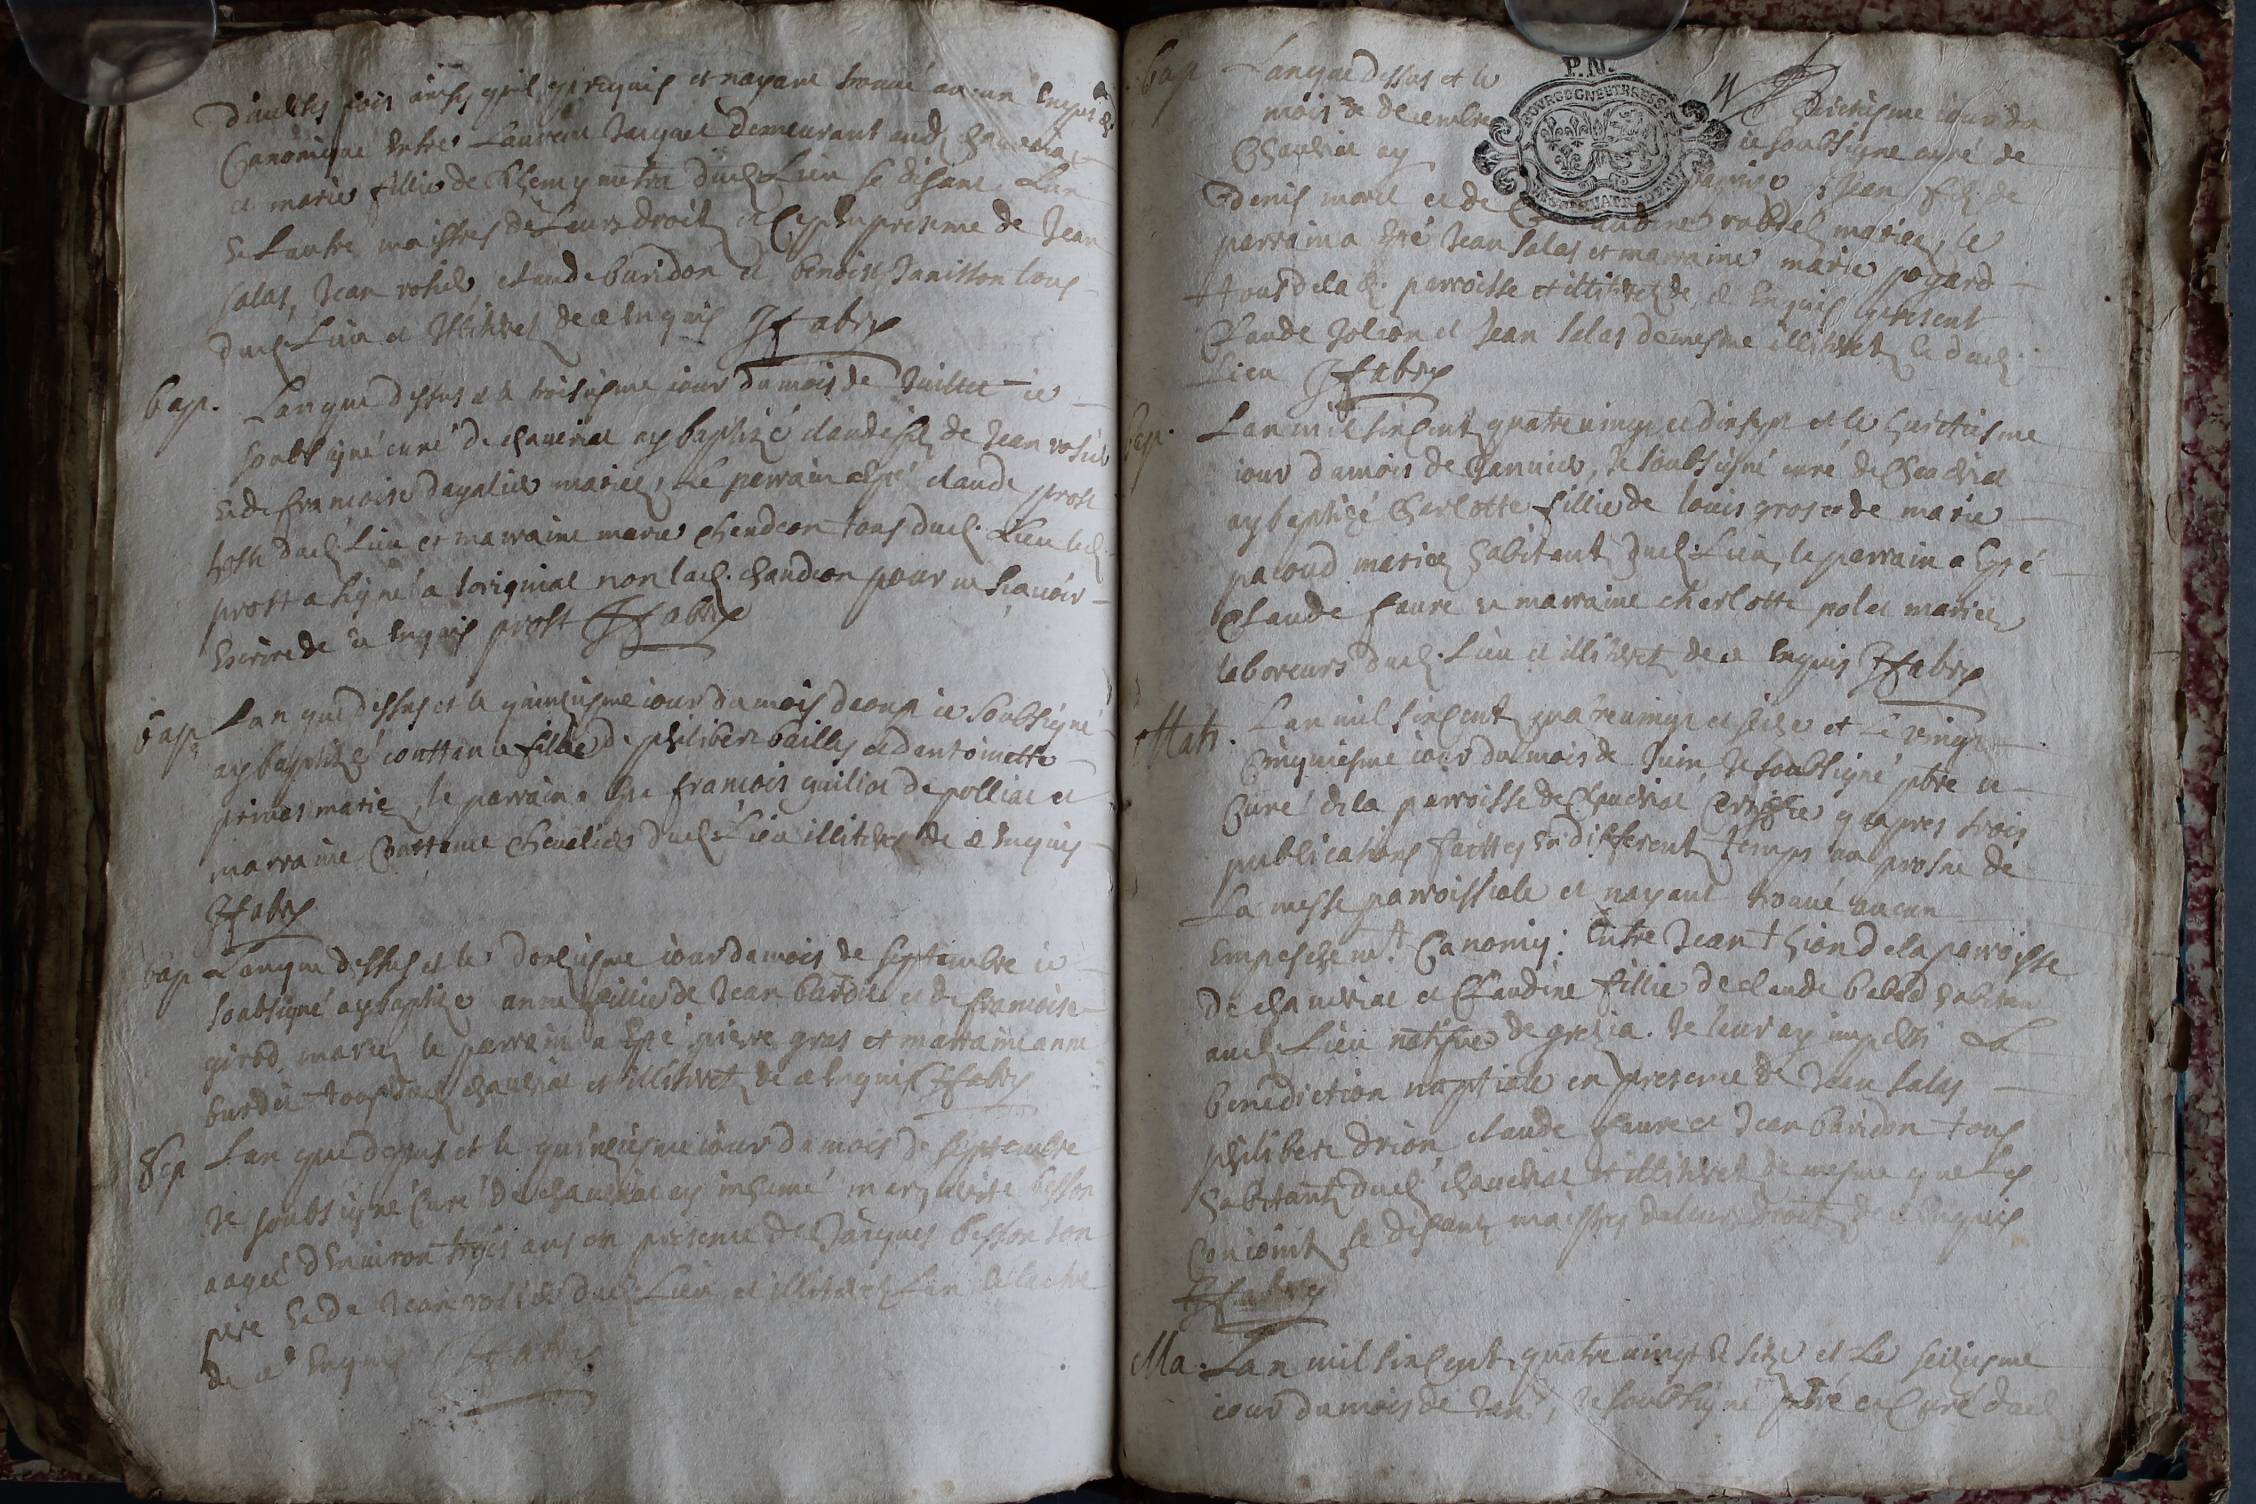 d'aultes fois ainsy qu'il est requis et nayant trouvé aucun
Canonique entre Laurent Jacques demeurant aud chaveiriat
et marie fillie de dud Lieu se disant Lun
et Lautre maistres de Leurs droit et ce en presence de Jean
salas, Jean rosier claude buridon et benoist Janisson tous
dud. Lieu et illitires de ce Enquis JFabry
bap. Lan que dessus et le troisiesme iour du mois de Juillet ie
soubsigné curé de chaveriat ay baptizé claude fils de Jean rosier
et de francoise dagalier mariez, Le parrain a esté claude prost
hoste dud. Lieu et marraine marie chendeon tous dud. Lieu led.
prost a signé a loriginal non lad. chandeon pour ne sçavoir
Escrire de ce Enquis prost JFabry
bap Lan que dessus et le quinziesme iour du mois daoust ie soubsigné
ay baptizé conttance fillie de philibert bailly et dantoinette
primas marie, le parrain a este francois guillot de polliat et
marraine Conttance Chevalier dud. Lieu illitires de ce enquis
JFabry
bap Lan que dessus et le douziesme iour du mois de septembre ie
soubsigné ay baptize anne fillie de Jean burdie et de francoise
girod mariez le parrain a Esté pierre gras et marraine anne
burdie tous dud chaveriat et illitires de ce enquis JFabry
Sep Lan que dessus et le quinziesme iour du mois de septembre
Je soubsigné Curé de chaveriat ay inhumé marguerite besson
aagée d'Environ trois ans en presence de Jacques besson son
pere Et de Jean rosier dud. Lieu et illitires Lun et lautre
de ce Enquis JFabry
bap Lan que dessus et le iesme iour du
mois de decembre ie soubsigné curé de
Chaveriat ay baptisé Jean fils de
Denis morel et de Claudine mariez, le
parrain a Esté Jean Salas et marraine marie pogard
tous de la d. parroisse et illitires de ce Enquis present
Claude Jolion et Jean Salas de mesme illitires et dud.
Lieu JFabry
Bap. Lan mil six Cent quatre vingt et dixsept et le huictiesme
iour du mois de Janvier, Je soubsigné curé de Chaveriat
ay baptizé Charlotte fillie de louis gros et de marie
pacoud mariez habitant dud. Lieu, le parrain a Esté
Claude faure et marraine charlotte polet mariez
laboreurs dud. Lieu et illitires de ce enquis JFabry
Mati. Lan mil six Cent quatre vingt et seize et Le vingt
Cinquiesme iour du mois de Juin, Je soubsigné pbre et
Curé de la parroisse de Chaveriat Certiffie qu apres trois
publications faittes en different temps au prosne de
La messe parroissiale et nayant trouvé aucun
Empeschemt. Canoniq: Entre Jean thion de la parroisse
de chaveriat et Claudine fillie de claude bebod habitant
aud. Lieu natifve de grezia. Je leur ay imparti La
benediction nuptiale en presence de Jean Salas
philibert drion, claude faure et Jean buridon tous
habitants dud. chaveriat et illitires de mesme que Les
Conioint se disants maistres de leurs droits de ce Enquis
JFabry
Ma. Lan mil six Cent quatre vingt et seize et Le seiziesme
iour du mois de , Je soubsigné pbre et Curé dud.